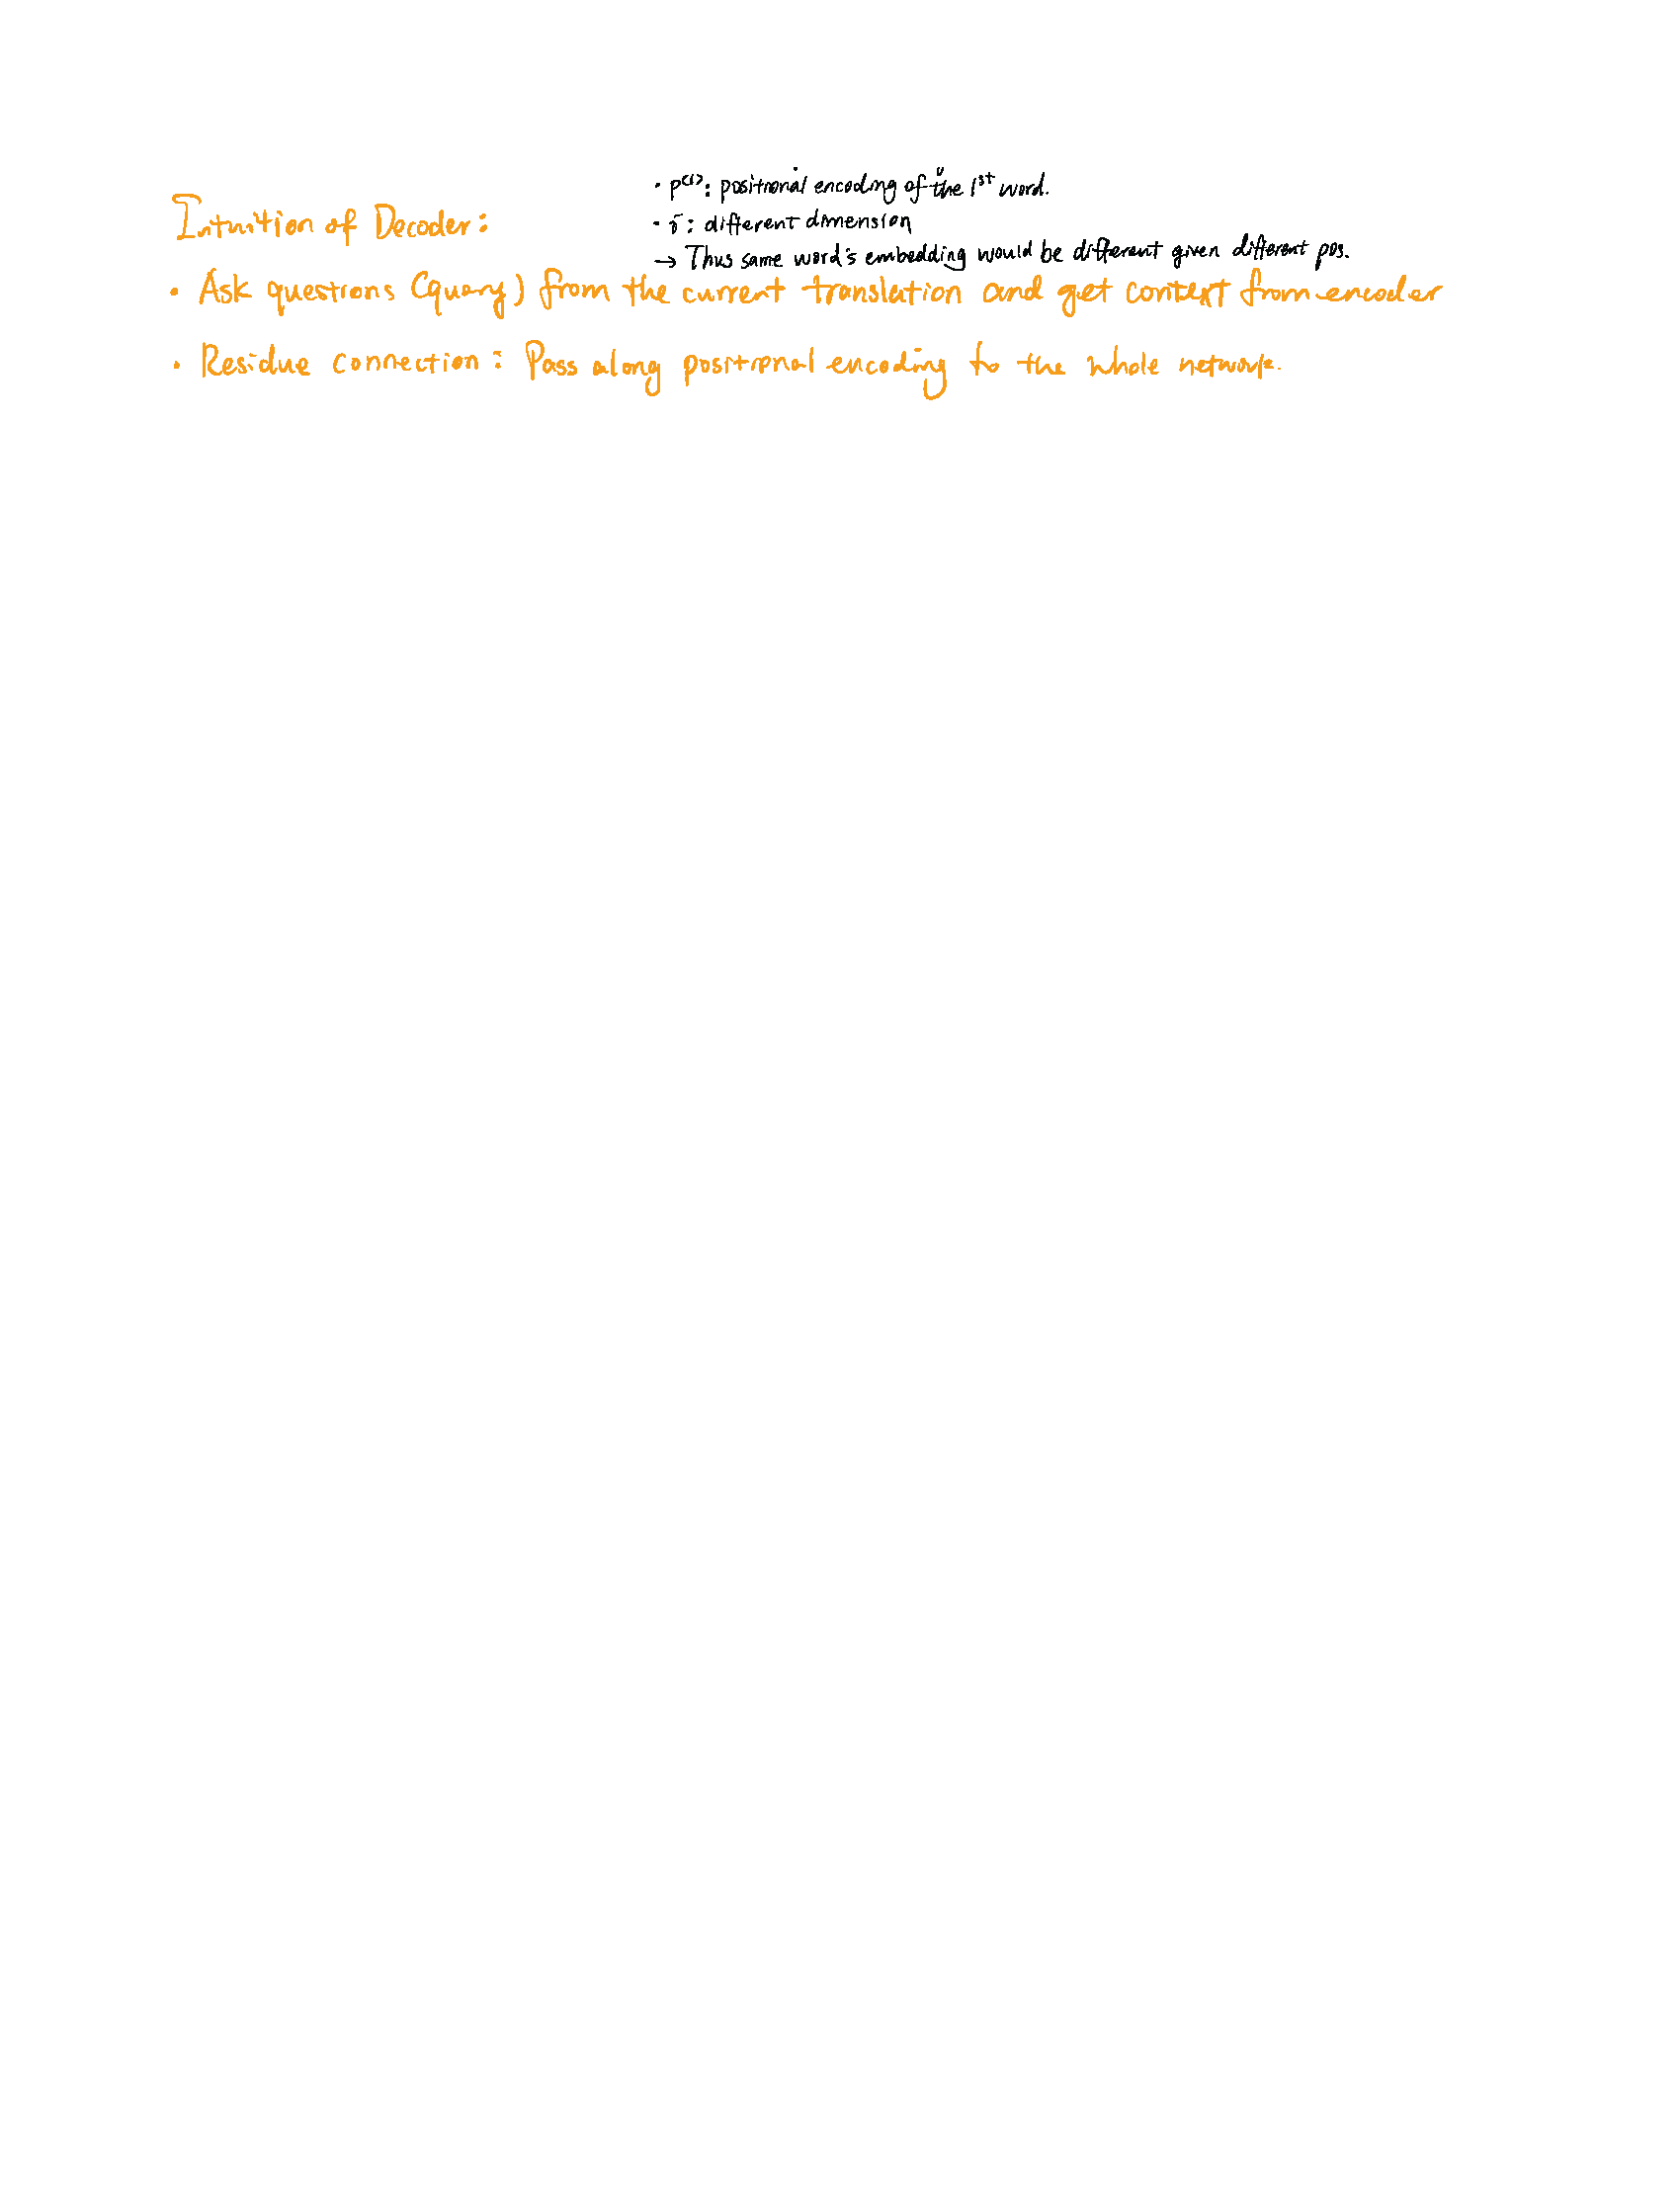 · p<1>: positional encoding of the 1st word.
Intuition of Decoder:
· : different dimension
→ Thus same word's embedding would be different given different pos.
· Ask questions (query) from the current translation and get context from encoder
· Residue connection: Pass along positional encoding to the whole network.